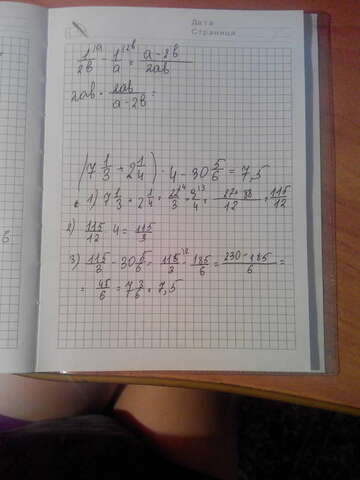 Дата
Страница
1/2в - 1/a = a-2в/2aв
2aв · 2aв/a-2в =
(7 1/3 + 2 1/4) · 4 - 30 5/6 = 7,5
1) 7 1/3 + 2 1/4 = 22/3 + 9/4 = /12 = 115/12
2) 115/12 · 4 = 115/3
3) 115/3 - 30 5/6 = 115/3 - 185/6 = 230-185/6 =
= 45/6 = 7 3/6 = 7,5